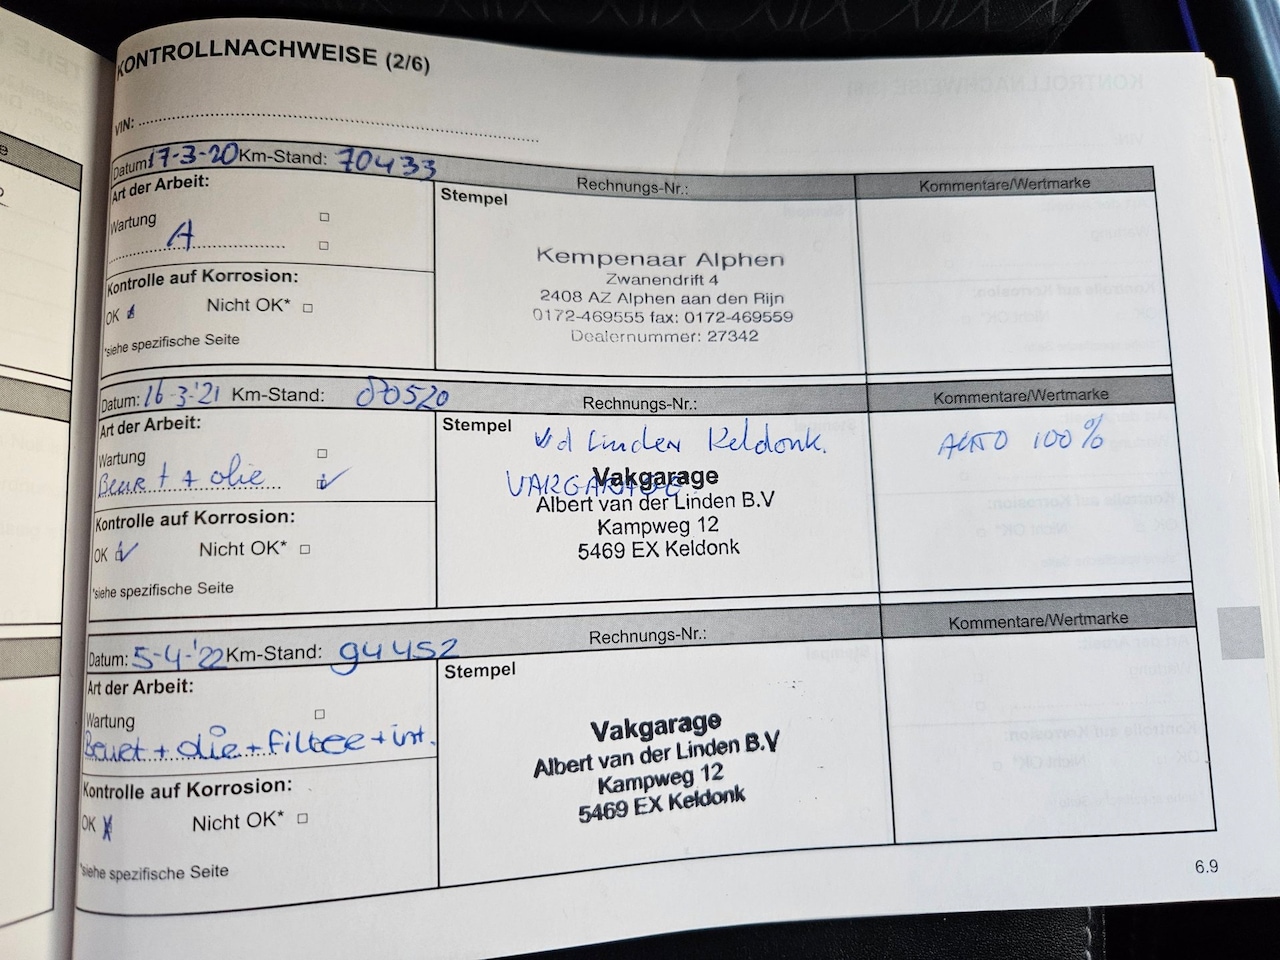 KONTROLLNACHWEISE (2/6)
VIN:
Datum: 17-3-20 Km-Stand: 70433
Rechnungs-Nr.:
Kommentare/Wertmarke
Art der Arbeit:
Stempel
Wartung
A
Kempenaar Alphen
Zwanendrift 4
2408 AZ Alphen aan den Rijn
0172-469555 fax: 0172-469559
Dealernummer: 27342
Kontrolle auf Korrosion:
OK Nicht OK*
*siehe spezifische Seite
Datum: 16-3-'21 Km-Stand: 80520
Rechnungs-Nr.:
Kommentare/Wertmarke
Art der Arbeit:
Stempel
Wartung
Beurt + olie
vd Linden Keldonk.
VAKGARAGE
Vakgarage
Albert van der Linden B.V
Kampweg 12
5469 EX Keldonk
AUTO 100%
Kontrolle auf Korrosion:
OK Nicht OK*
*siehe spezifische Seite
Datum: 5-4-'22 Km-Stand: 94452
Rechnungs-Nr.:
Kommentare/Wertmarke
Art der Arbeit:
Stempel
Wartung
Beurt + olie + filter + int.
Vakgarage
Albert van der Linden B.V
Kampweg 12
5469 EX Keldonk
Kontrolle auf Korrosion:
OK Nicht OK*
*siehe spezifische Seite
6.9